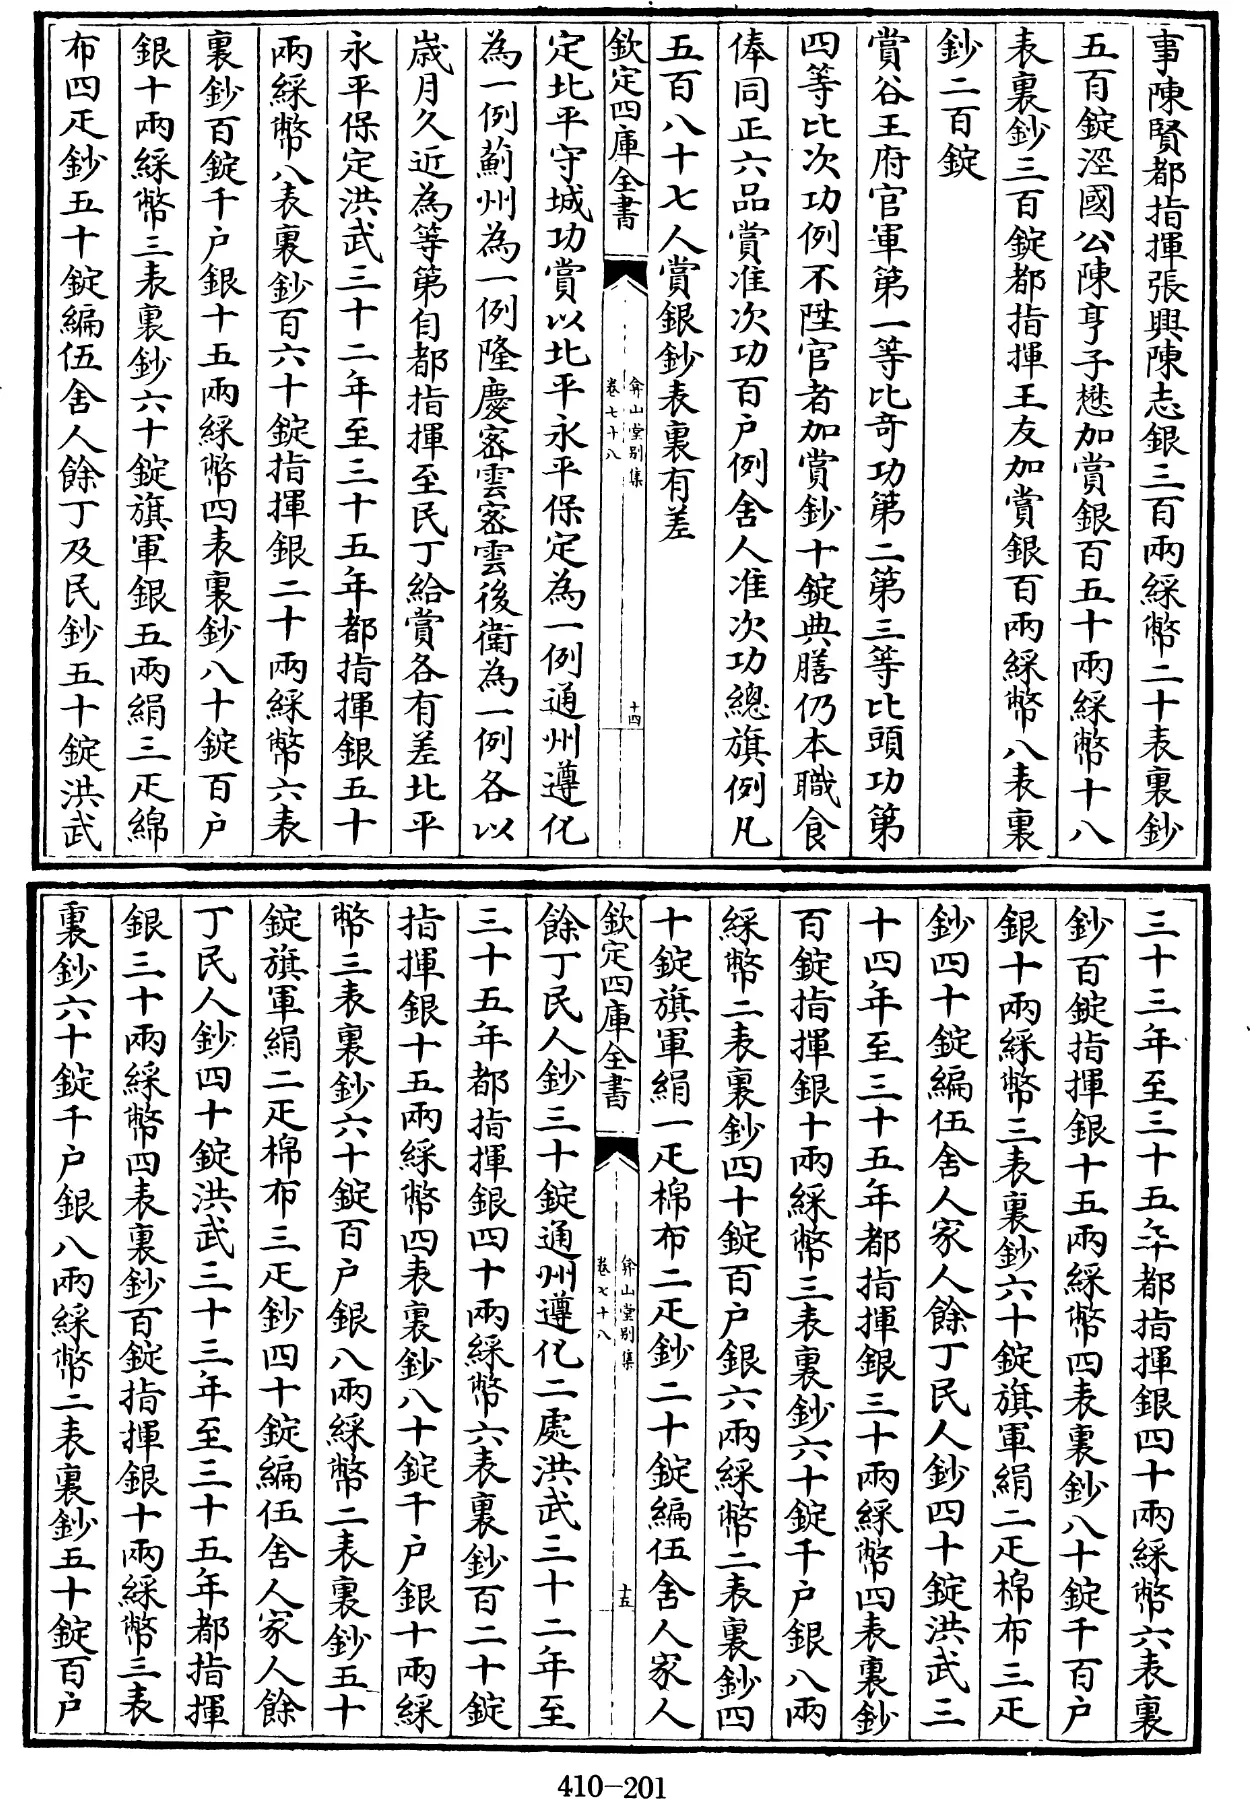 事陳賢都指揮張興陳志銀三百兩綵幣二十表裏鈔
五百錠涇國公陳亨子懋加賞銀百五十兩綵幣十八
表裏鈔三百錠都指揮王友加賞銀百兩綵幣八表裏
鈔二百錠
賞谷王府官軍第一等比奇功第二第三等比頭功第
四等比次功例不陞官者加賞鈔十錠典膳仍本職食
俸同正六品賞准次功百户例舍人准次功總旗例凡
五百八十七人賞銀鈔表裏有差
欽定四庫全書
弇山堂别集
卷七十八
十四
定北平守城功賞以北平永平保定為一例通州遵化
為一例薊州為一例隆慶宻雲宻雲後衛為一例各以
歲月久近為等第自都指揮至民丁給賞各有差北平
永平保定洪武三十二年至三十五年都指揮銀五十
兩綵幣八表裏鈔百六十錠指揮銀二十兩綵幣六表
裏鈔百錠千户銀十五兩綵幣四表裏鈔八十錠百户
銀十兩綵幣三表裏鈔六十錠旗軍銀五兩絹三疋綿
布四疋鈔五十錠編伍舍人餘丁及民鈔五十錠洪武
三十三年至三十五年都指揮銀四十兩綵幣六表裏
鈔百錠指揮銀十五兩綵幣四表裏鈔八十錠千百户
銀十兩綵幣三表裏鈔六十錠旗軍絹二疋棉布三疋
鈔四十錠編伍舍人家人餘丁民人鈔四十錠洪武三
十四年至三十五年都指揮銀三十兩綵幣四表裏鈔
百錠指揮銀十兩綵幣三表裏鈔六十錠千户銀八兩
綵幣二表裏鈔四十錠百户銀六兩綵幣二表裏鈔四
十錠旗軍絹一疋棉布二疋鈔二十錠編伍舍人家人
欽定四庫全書
弇山堂别集
卷七十八
十五
餘丁民人鈔三十錠通州遵化二處洪武三十二年至
三十五年都指揮銀四十兩綵幣六表裏鈔百二十錠
指揮銀十五兩綵幣四表裏鈔八十錠千户銀十兩綵
幣三表裏鈔六十錠百户銀八兩綵幣二表裏鈔五十
錠旗軍絹二疋棉布三疋鈔四十錠編伍舍人家人餘
丁民人鈔四十錠洪武三十三年至三十五年都指揮
銀三十兩綵幣四表裏鈔百錠指揮銀十兩綵幣三表
裏鈔六十錠千户銀八兩綵幣二表裏鈔五十錠百户
410-201